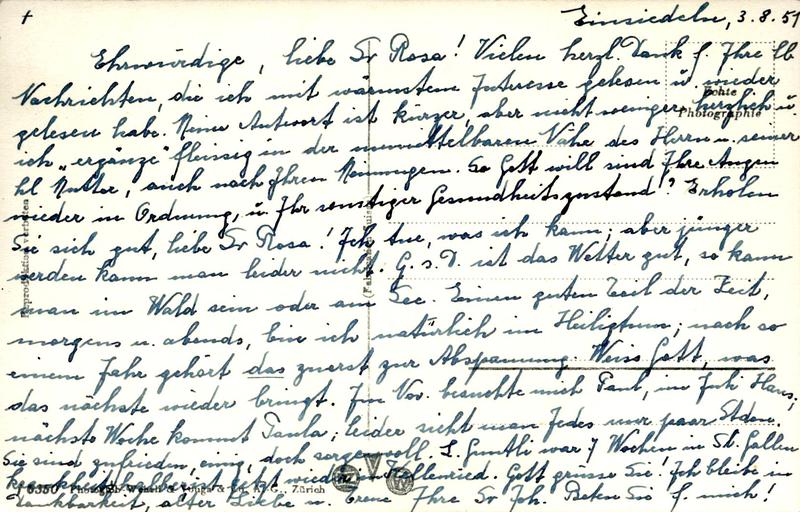 + Einsiedeln, 3.8.51
Ehrwürdige, liebe Sr Rosa! Vielen herzl. Dank f. Ihre lb
Nachrichten, die ich mit wärmstem Interesse gelesen u. wieder
gelesen habe. Meine Antwort ist kürzer, aber nicht weniger herzlich u.
ich „ergänze" fleissig in der unmittelbaren Nähe des Herrn u. seiner
hl Mutter, auch nach Ihren Meinungen. So Gott will sind Ihre Augen
wieder in Ordnung, u. Ihr sonstiger Gesundheitszustand? Erholen
Sie sich gut, liebe Sr Rosa! Ich tue, was ich kann; aber jünger
werden kann man leider nicht. G. s. D. ist das Wetter gut, so kann
man im Wald sein oder am See. Einen guten Teil der Zeit,
morgens u. abends, bin ich natürlich im Heiligtum; nach so
einem Jahr gehört das zuerst zur Abspannung. Weiss Gott, was
das nächste wieder bringt. Im Nov. besuchte mich Paul, im Juli Hans,
nächste Woche kommt Paula; leider sieht man Jedes nur paar Stdn.
Sie sind zufrieden, einig, doch sorgenvoll. S. war 7 Wochen in St. Gallen
ist jetzt wieder Gott grüsse Sie! Ich bleibe in
Dankbarkeit, alter Liebe u. Treue Ihre Sr Joh. Beten Sie f. mich!
Echte
Photographie
Reproduktion verboten
6350 Photogr. Wehrli & Zürich